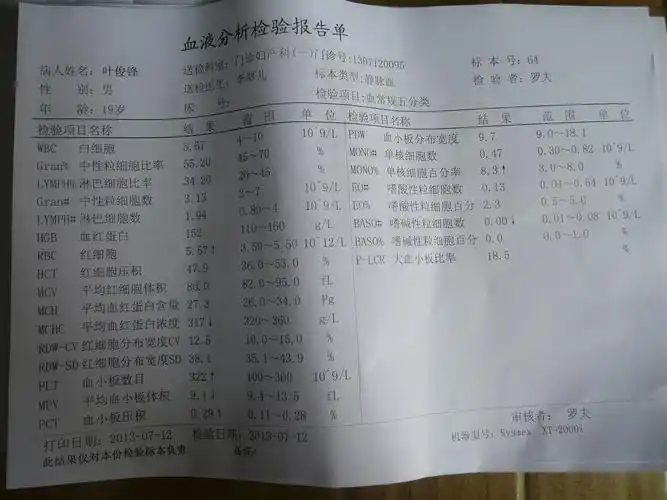 血液分析检验报告单
病人姓名: 叶俊锋 送检科室: 门诊妇产科(一)门诊号:1307120095 标 本 号: 64
性 别: 男 送检医生: 李丽儿 标本类型:静脉血 检 验 者: 罗夫
年 龄: 19岁 床 号: 检验项目:血常规五分类
检验项目名称 结 果 范 围 单 位 检验项目名称 结 果 范 围 单 位
WBC 白细胞 5.67 4~10 10^9/L PDW 血小板分布宽度 9.7 9.0~18.1
Gran% 中性粒细胞比率 55.20 45~70 % MONO# 单核细胞数 0.47 0.30~0.82 10^9/L
LYMPH% 淋巴细胞比率 34.20 20~45 % MONO% 单核细胞百分率 8.3↑ 3.0~8.0 %
Gran# 中性粒细胞数 3.13 2~7 10^9/L EO# 嗜酸性粒细胞数 0.13 0.04~0.54 10^9/L
LYMPH# 淋巴细胞数 1.94 0.80~4 10^9/L EO% 嗜酸性粒细胞百分 2.3 0.5~5.0 %
HGB 血红蛋白 152 110~160 g/L BASO# 嗜碱性粒细胞数 0.00↓ 0.01~0.08 10^9/L
RBC 红细胞 5.57↑ 3.50~5.50 10^12/L BASO% 嗜碱性粒细胞百分 0.0 0.0~1.0 %
HCT 红细胞压积 47.9 36.0~53.0 % P-LCR 大血小板比率 18.5 %
MCV 平均红细胞体积 86.0 82.0~95.0 fL
MCH 平均血红蛋白含量 27.3 26.0~34.0 Pg
MCHC 平均血红蛋白浓度 317↓ 320~360 g/L
RDW-CV 红细胞分布宽度CV 12.5 10.0~15.0 %
RDW-SD 红细胞分布宽度SD 38.1 35.1~43.9 %
PLT 血小板数目 322↑ 100~300 10^9/L
MPV 平均血小板体积 9.1↓ 9.4~13.5 fL
PCT 血小板压积 0.29↑ 0.11~0.28 %
打印日期: 2013-07-12 检验日期: 2013-07-12 审核者: 罗夫
此结果仅对本份检验标本负责 备注: 机器型号: Sysmex XT-2000i